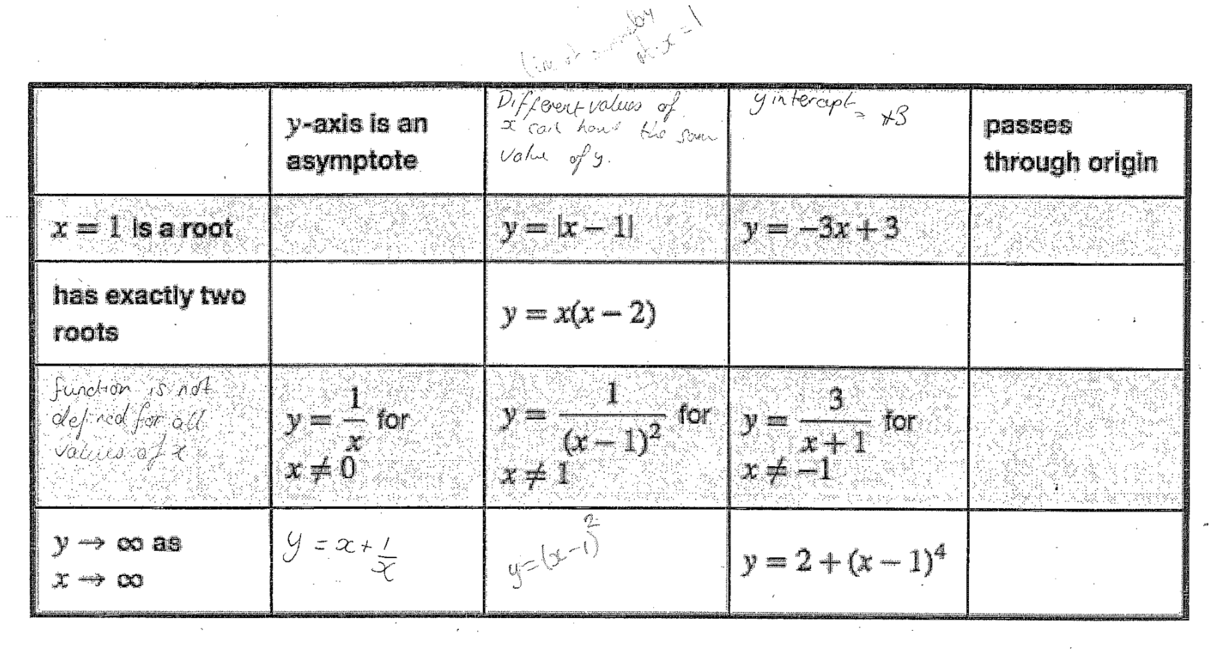 at x = 1
y-axis is an
asymptote
Different values of
x can have the same
value of y.
y intercept = +3
passes
through origin
x = 1 is a root
y = |x − 1|
y = −3x + 3
has exactly two
roots
y = x(x − 2)
function is not
defined for all
values of x
y = 1/x for
x ≠ 0
y = 1/(x − 1)² for
x ≠ 1
y = 3/(x + 1) for
x ≠ −1
y → ∞ as
x → ∞
y = x + 1/x
y = (x − 1)²
y = 2 + (x − 1)⁴